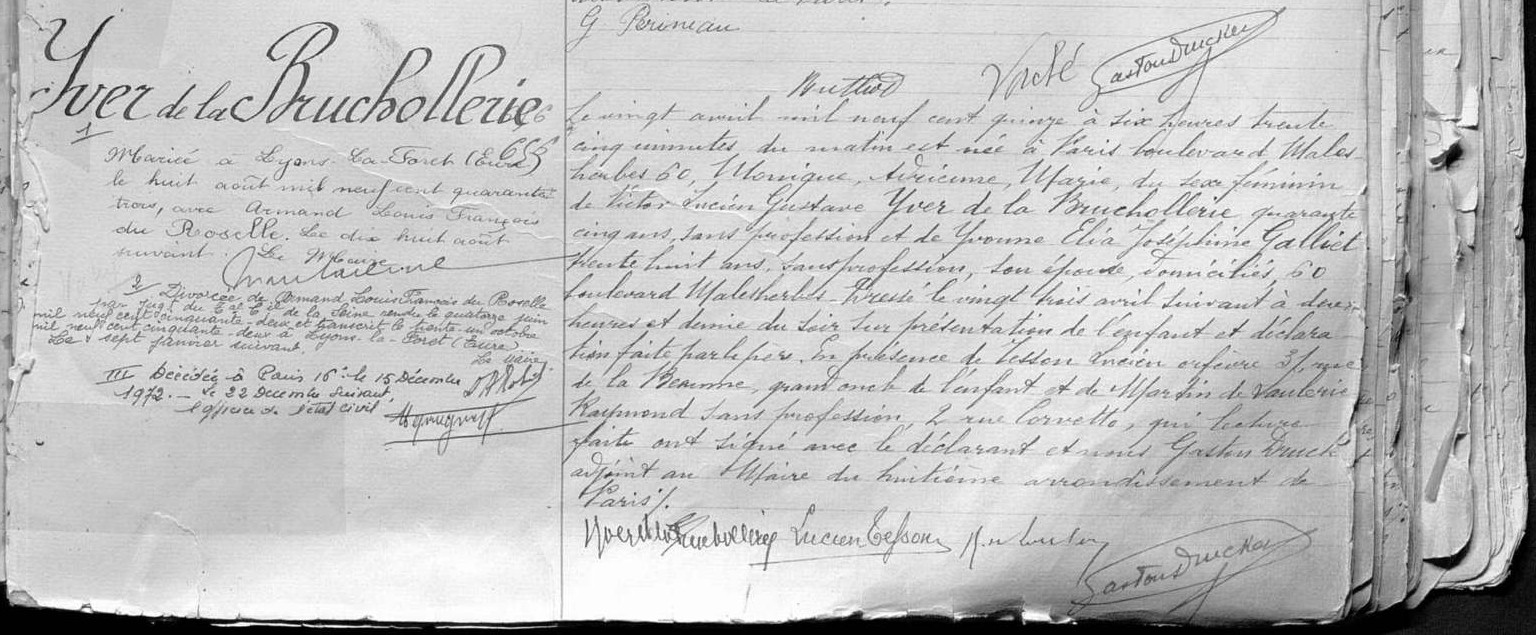 G Perineau
Vaché Gaston Drucker
Yver de la Bruchollerie
666
1
Mariée à Lyons-La-Foret (Eure)
le huit août mil neuf cent quarante
trois, avec Armand Louis François
du Roselle. Le dix huit août
suivant. Le Maire
2/ Divorcée de Armand Louis François du Roselle
par jug du T al C il de la Seine rendu le quatorze juin
mil neuf cent cinquante-deux et transcrit le trente un octobre
mil neuf cent cinquante deux à Lyons-la-Foret (Eure)
Le sept janvier suivant.
Le Maire
III Décédée à Paris 16e le 15 Décembre
1972. — Le 22 Decembre Suivant,
l'officier de l'état civil,
Le vingt avril mil neuf cent quinze à six heures trente
cinq minutes du matin est née à Paris boulevard Males-
herbes 60, Monique, Adrienne, Marie, du sexe féminin
de Victor Lucien Gustave Yver de la Bruchollerie quarante
cinq ans, sans profession et de Yvonne Elia Joséphine Galliet
trente huit ans, sans profession, son épouse, domiciliés, 60
boulevard Malesherbes. Dressé le vingt trois avril suivant à deux
heures et demie du soir sur présentation de l'enfant et déclara
tion faite par le père. En présence de Tesson Lucien orfèvre 31, rue
de la , grand oncle de l'enfant et de Martin de Vaulerie
Raymond sans profession, 2 rue Corvetto, qui lecture
faite ont signé avec le déclarant et nous Gaston Druck
adjoint au Maire du huitième arrondissement de
Paris ./.
Yver de la Bruchollerie Lucien Tesson
Gaston Drucker